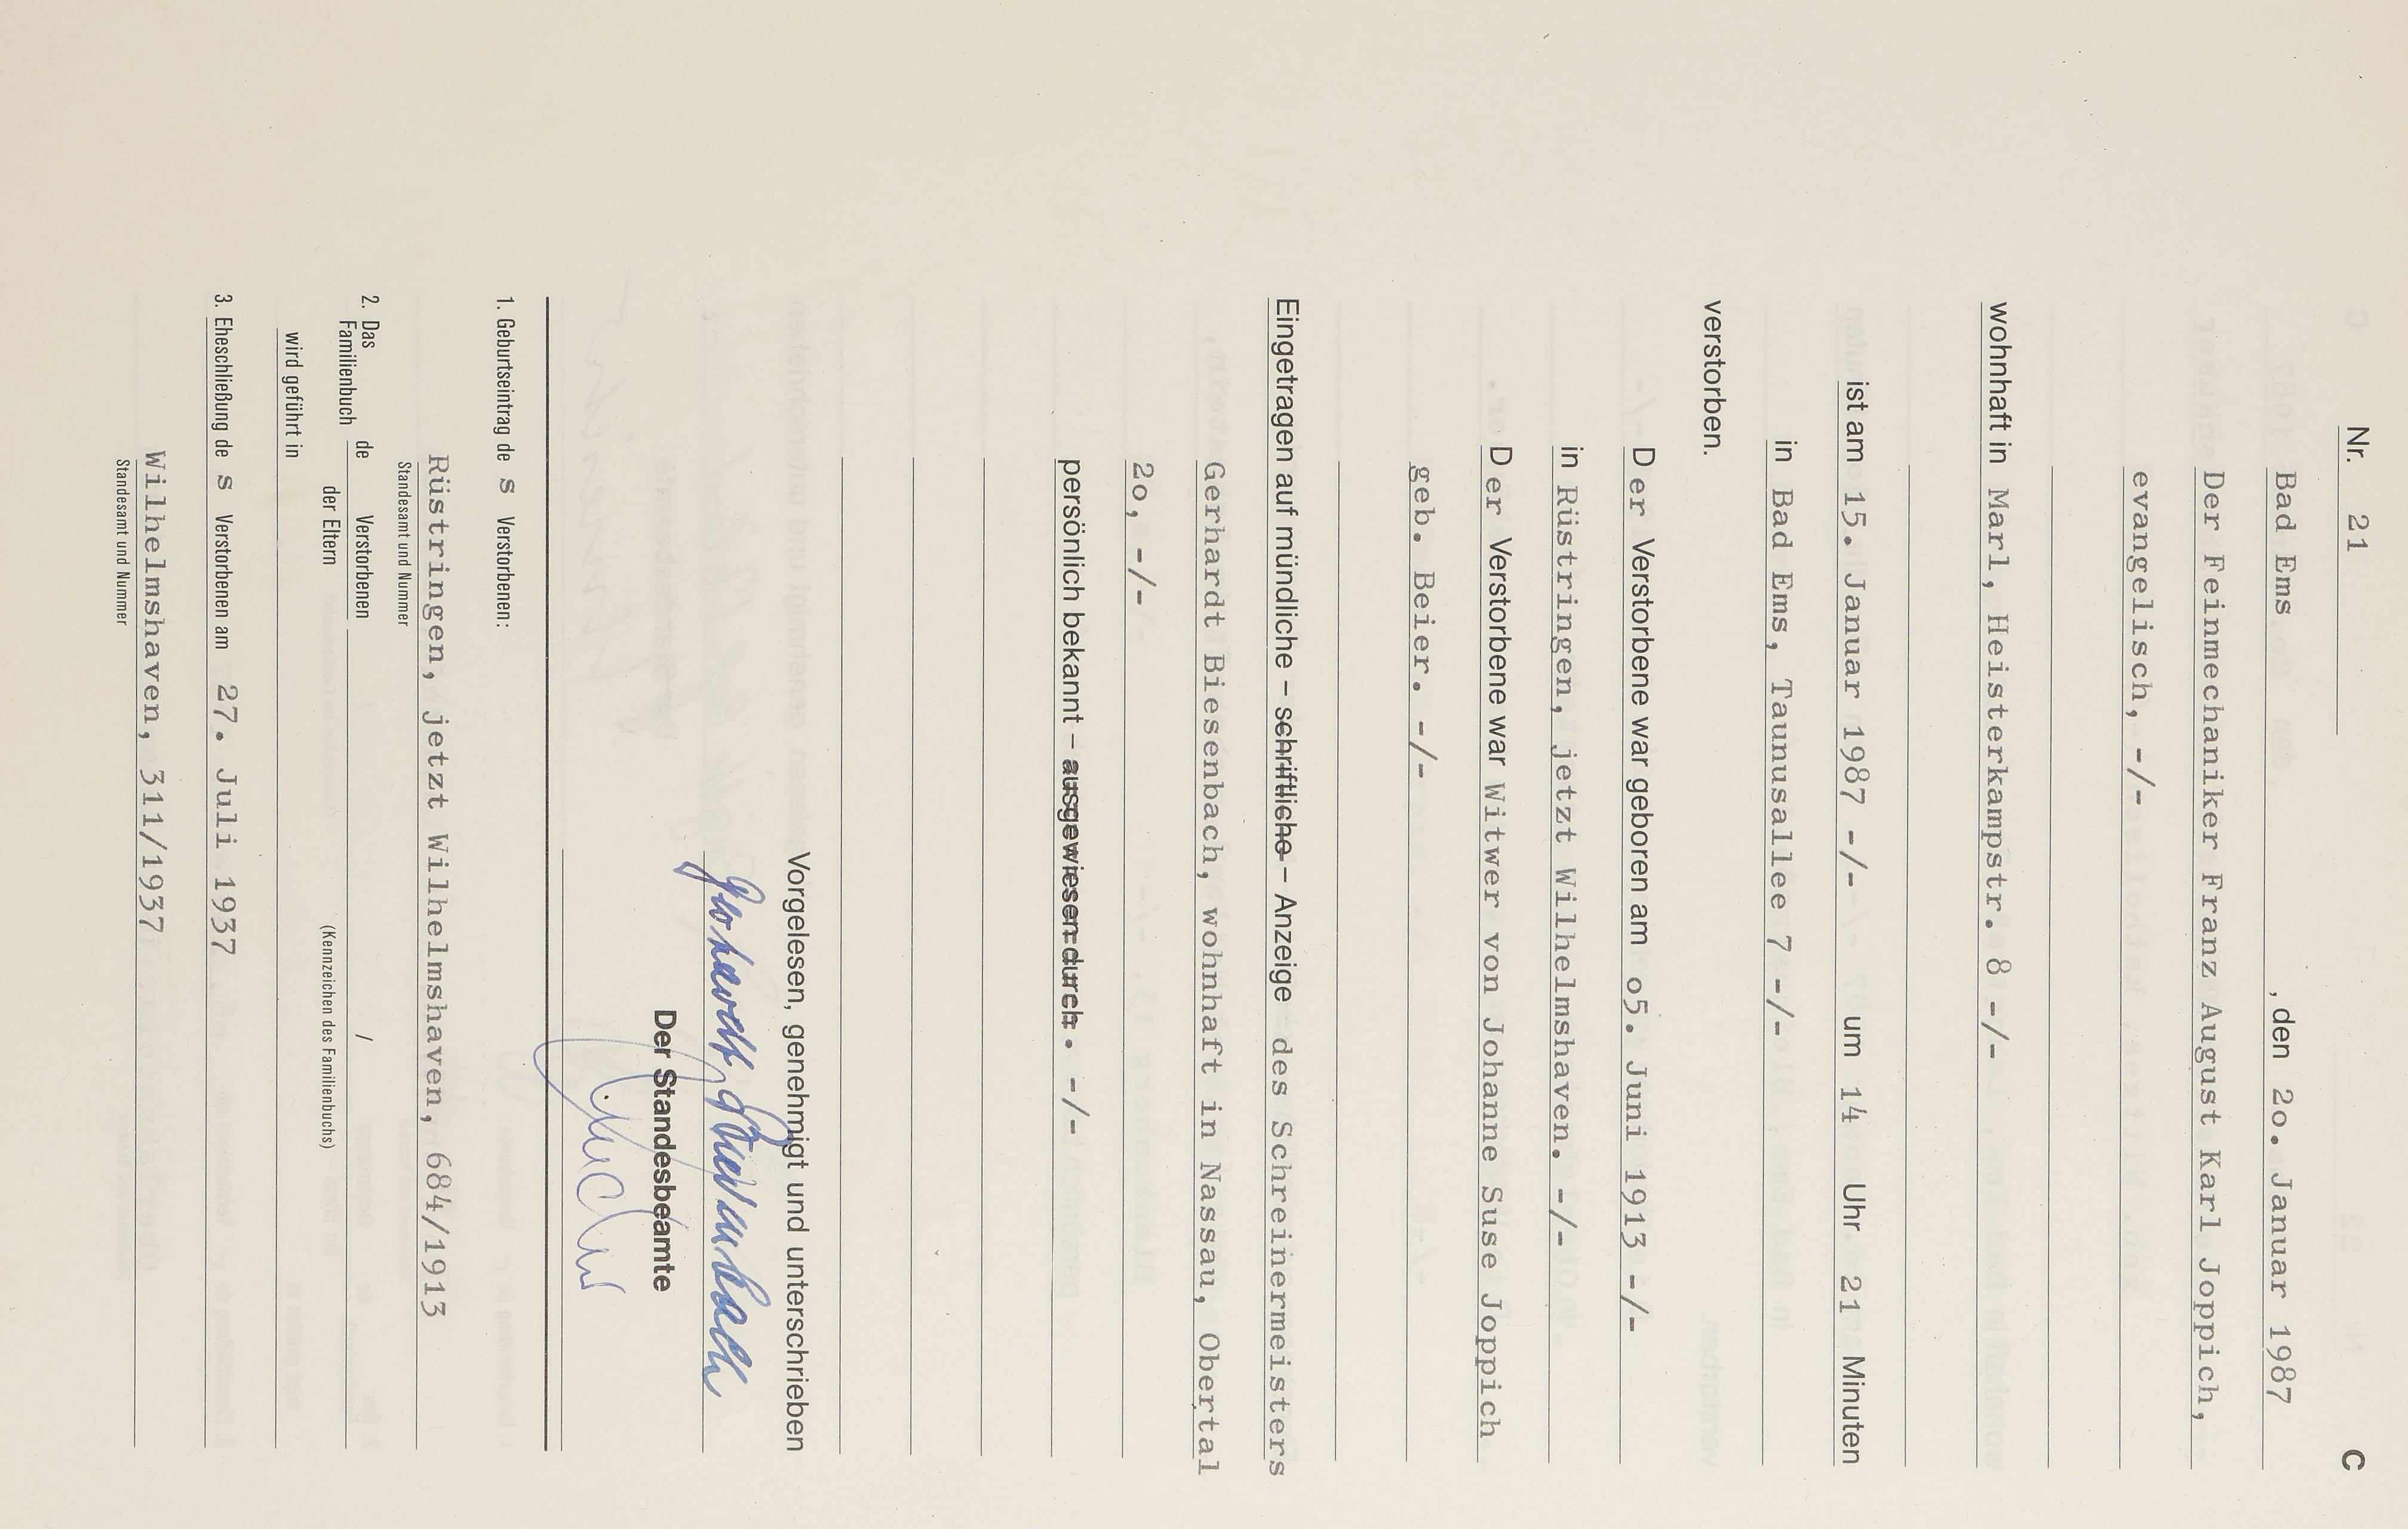 Nr. 21 C
Bad Ems, den 2o. Januar 1987
Der Feinmechaniker Franz August Karl Joppich,
evangelisch, -/-
wohnhaft in Marl, Heisterkampstr. 8 -/-
ist am 15. Januar 1987 -/- um 14 Uhr 21 Minuten
in Bad Ems, Taunusallee 7 -/-
verstorben.
D er Verstorbene war geboren am o5. Juni 1913 -/-
in Rüstringen, jetzt Wilhelmshaven. -/-
D er Verstorbene war Witwer von Johanne Suse Joppich
geb. Beier. -/-
Eingetragen auf mündliche – schriftliche – Anzeige des Schreinermeisters
Gerhardt Biesenbach, wohnhaft in Nassau, Obertal
2o, -/-
persönlich bekannt – ausgewiesen durch. -/-
Vorgelesen, genehmigt und unterschrieben
Gerhardt Biesenbach
Der Standesbeamte
1. Geburtseintrag de s Verstorbenen:
Rüstringen, jetzt Wilhelmshaven, 684/1913
Standesamt und Nummer
2. Das Familienbuch de Verstorbenen /
der Eltern (Kennzeichen des Familienbuchs)
wird geführt in
3. Eheschließung de s Verstorbenen am 27. Juli 1937
Wilhelmshaven, 311/1937
Standesamt und Nummer